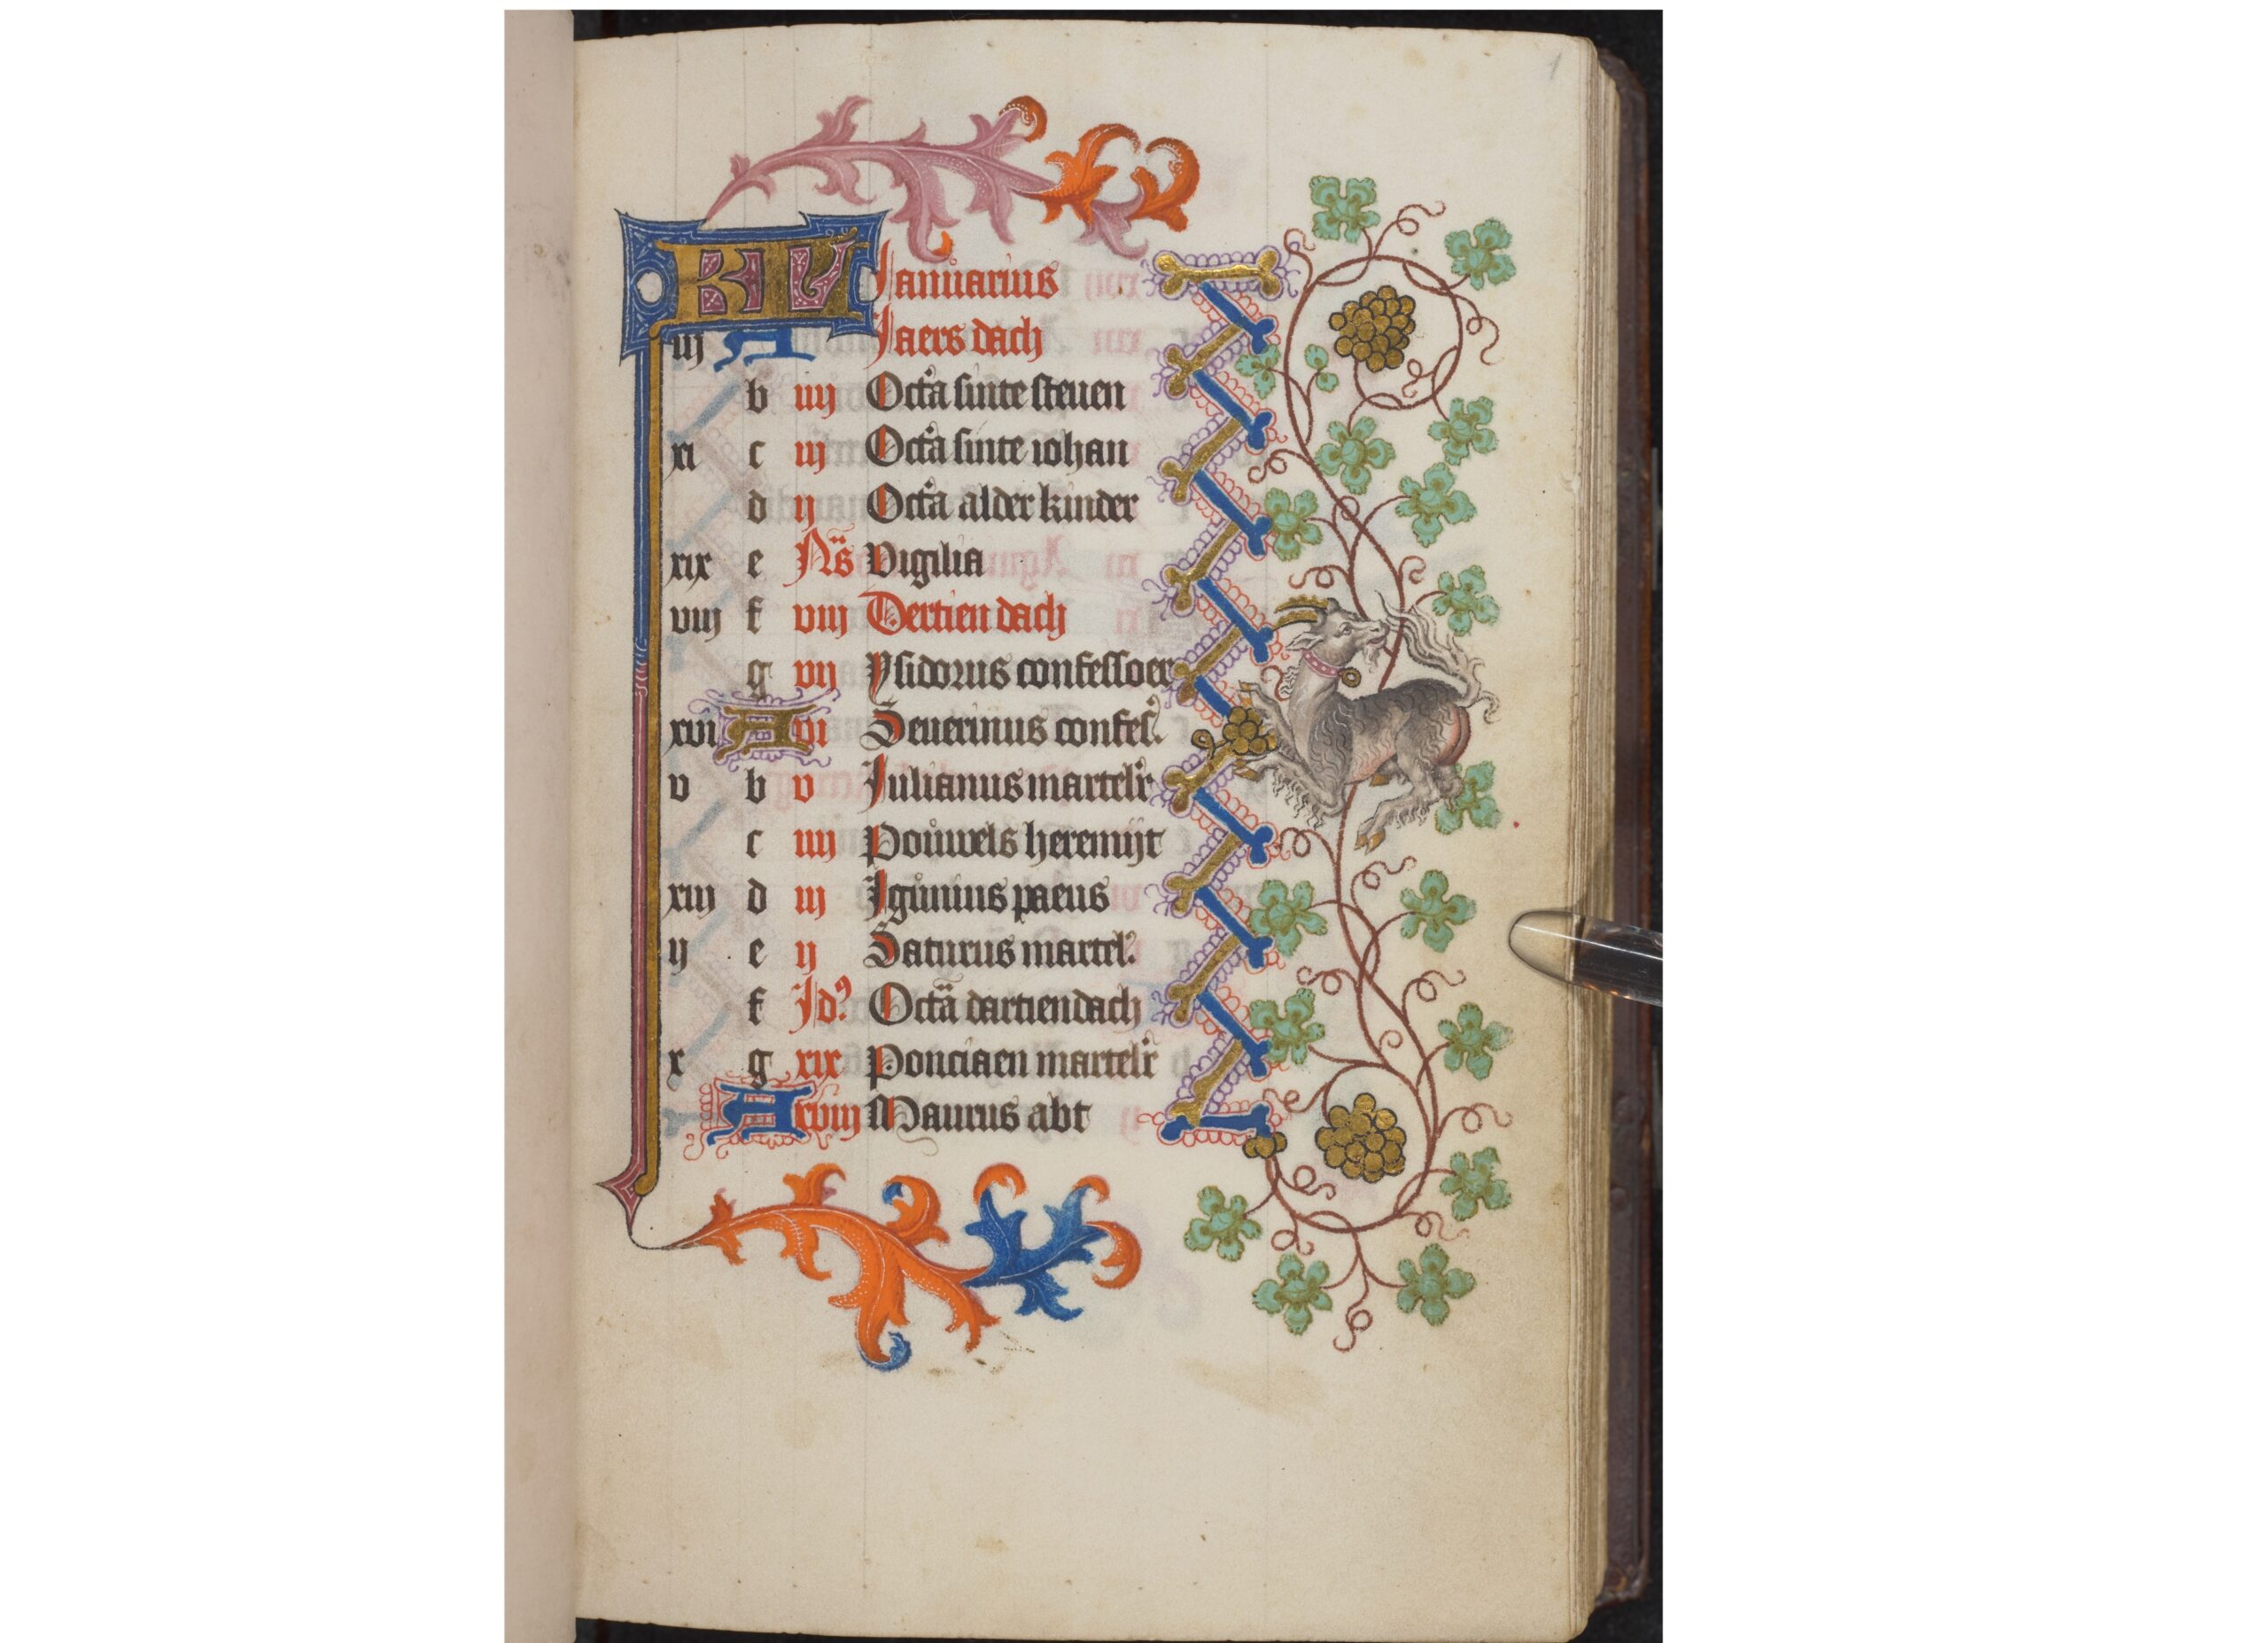 1
KL Januarius
iij A Jaers dach
b iiij Octa sinte steuen
xi c iij Octa sinte iohan
d ij Octa alder kinder
xix e Ns Vigilia
viij f viij Dertien dach
g vij Ysidorus confessoer
xvi A vi Seuerinus confes.
v b v Iulianus martelr
c iiij Pouwels heremijt
xiij d iij Igimius paeus
ij e ij Saturus martel.
f Id. Octa dartiendach
x g xix Ponciaen martelr
A xviij Maurus abt